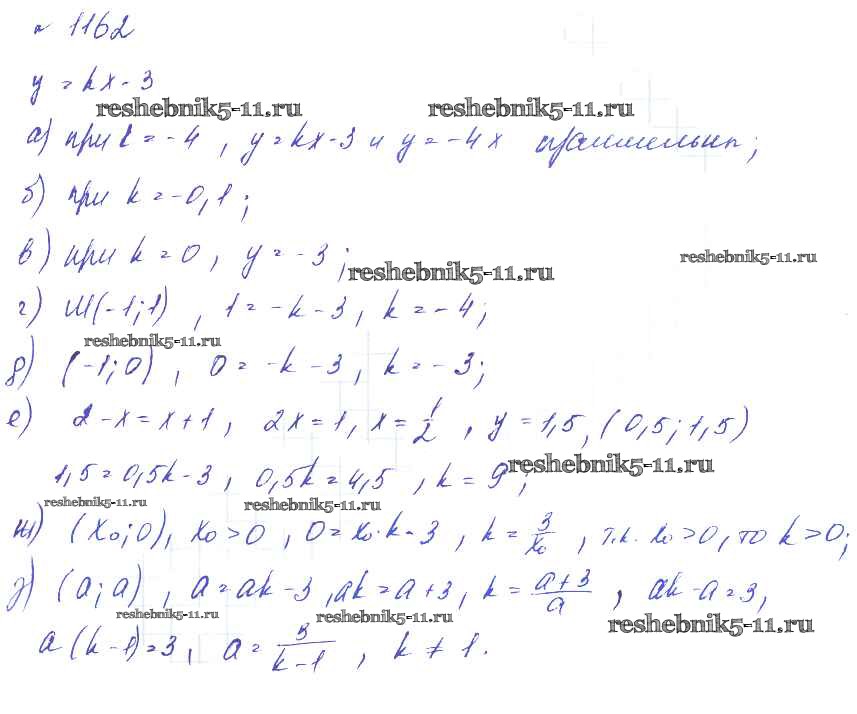 № 1162
y = kx - 3
reshebnik5-11.ru reshebnik5-11.ru
а) при k = -4 , y = kx - 3 и y = -4x параллельны;
б) при k = -0,1 ;
в) при k = 0 , y = -3 ;
reshebnik5-11.ru reshebnik5-11.ru
г) М(-1; 1) , 1 = -k - 3 , k = -4 ;
reshebnik5-11.ru
д) (-1; 0) , 0 = -k - 3 , k = -3 ;
е) 2 - x = x + 1 , 2x = 1 , x = 1/2 , y = 1,5 , (0,5 ; 1,5)
reshebnik5-11.ru
1,5 = 0,5k - 3 , 0,5k = 4,5 , k = 9 ;
reshebnik5-11.ru reshebnik5-11.ru
ж) (x₀; 0) , x₀ > 0 , 0 = x₀·k - 3 , k = 3/x₀ , т.к. x₀ > 0 , то k > 0 ;
з) (a; a) , a = ak - 3 , ak = a + 3 , k = (a + 3)/a , ak - a = 3 ,
reshebnik5-11.ru reshebnik5-11.ru reshebnik5-11.ru
a(k - 1) = 3 , a = 3/(k - 1) , k ≠ 1 .